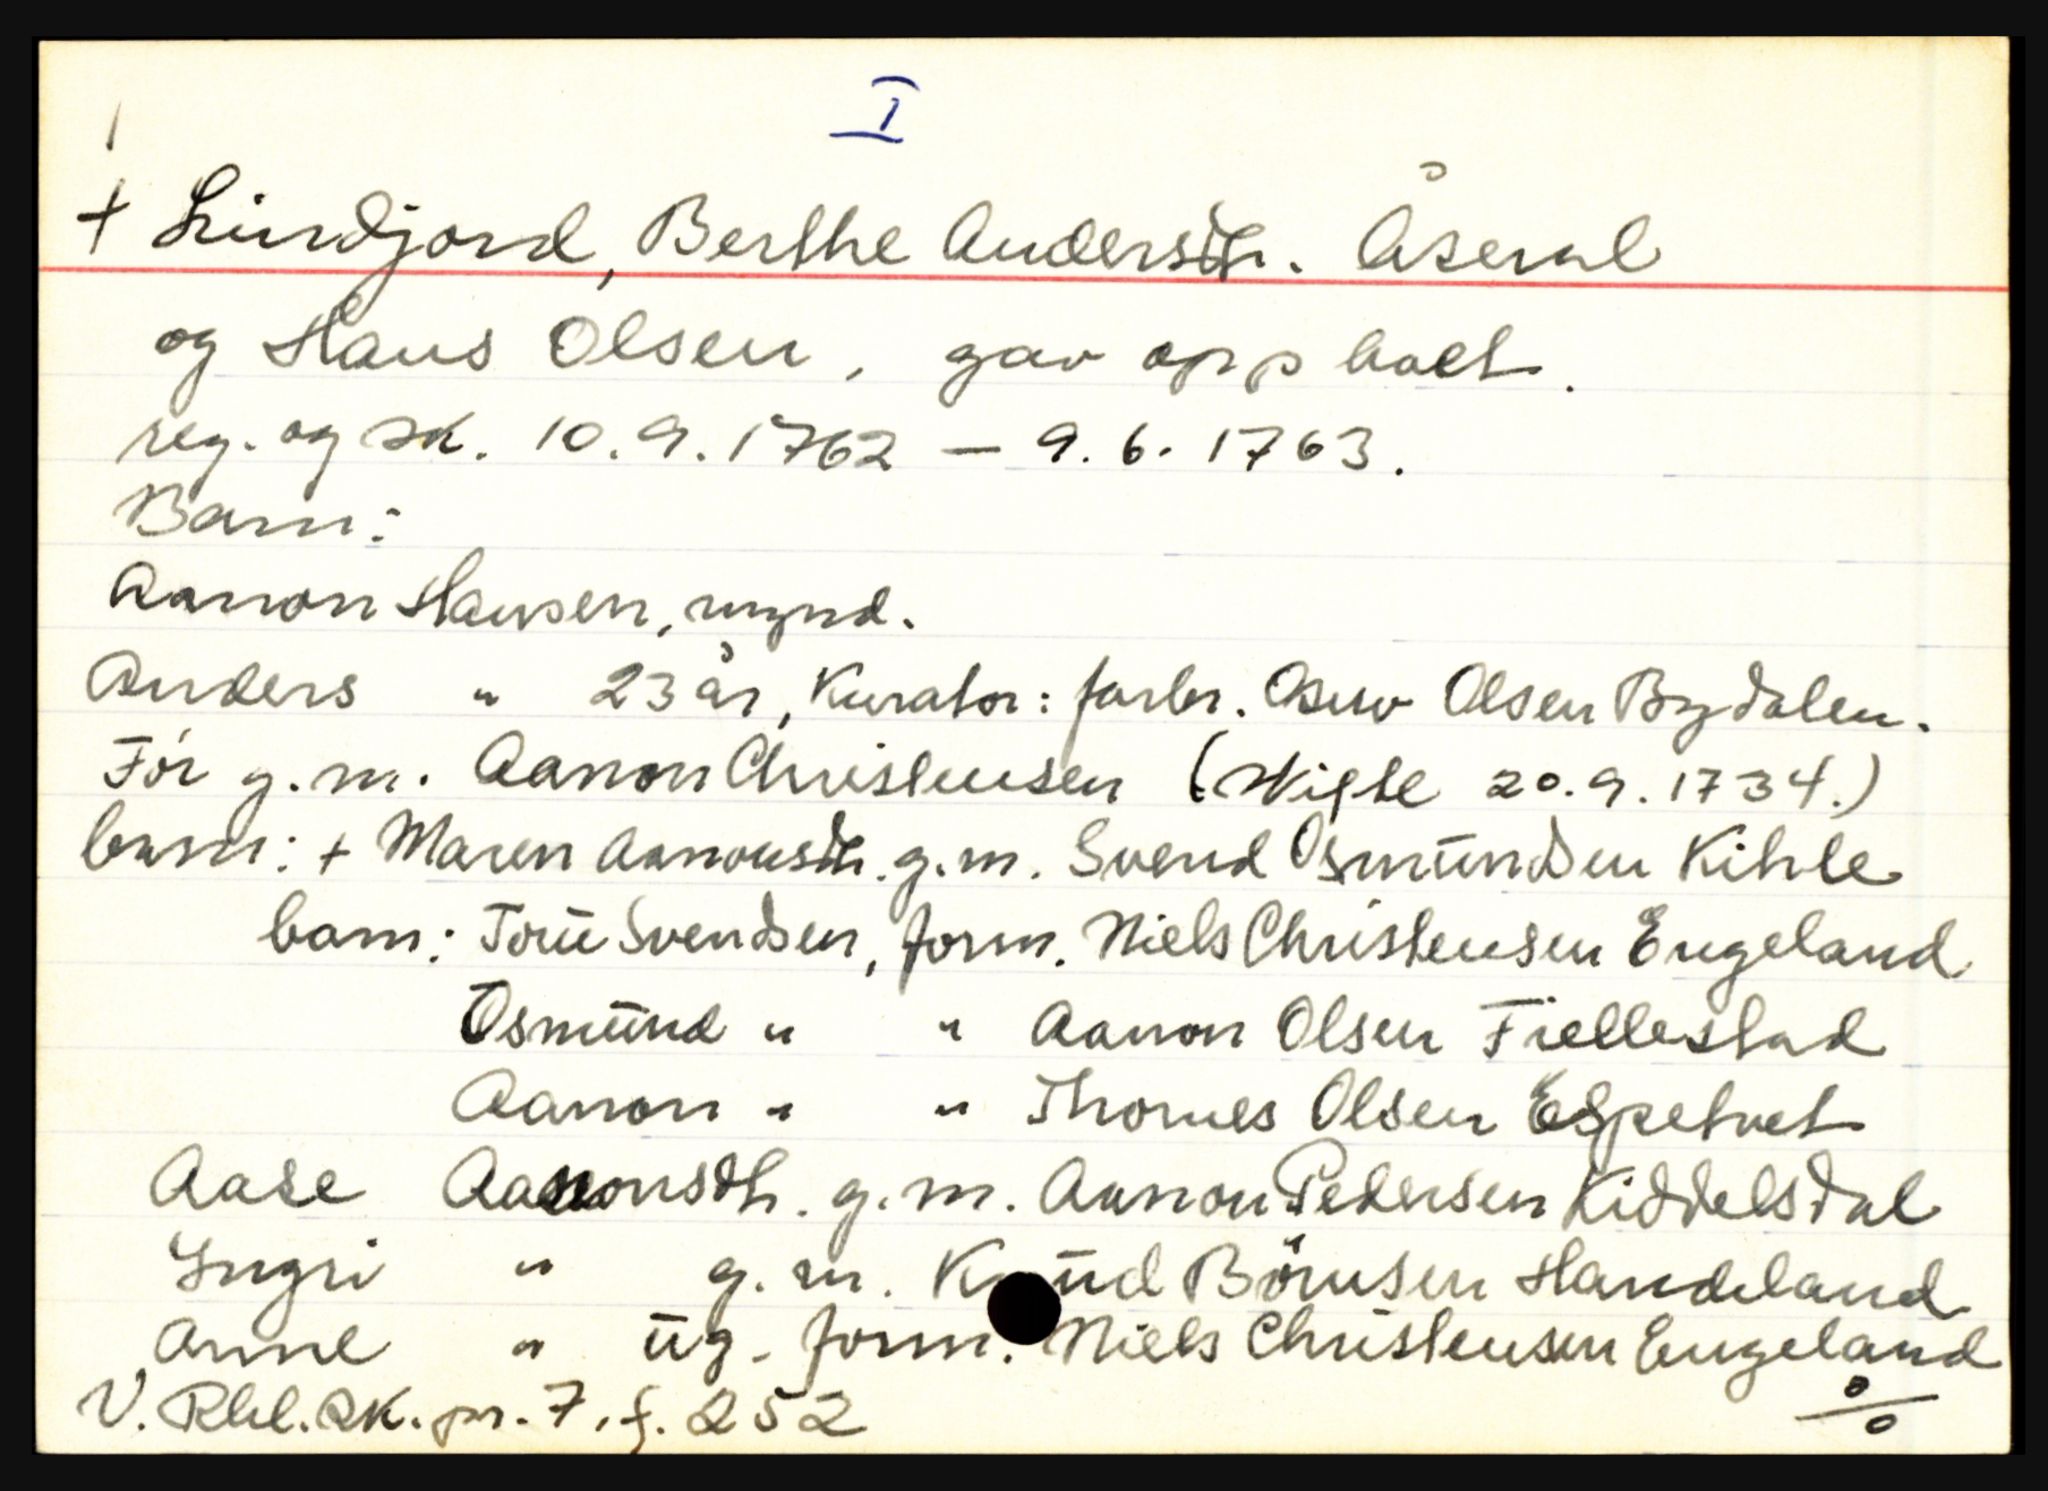 I
+ Lindjord, Berthe Andersdtr. Åseral
og Hans Olsen, gav opp boet.
reg. og sk. 10.9.1762 – 9.6.1763.
Barn:
Aanon Hansen, mynd.
Anders " 23 år, Kurator: farbr. Osuv Olsen Bydalen.
För g.m. Aanon Christensen (skifte 20.9.1734.)
barn: + Maren Aanonsdtr. g.m. Svend Osmündsen Kihle
barn: Torü Svendsen, form. Niels Christensen Engeland
Osmünd " " Aanon Olsen Fiellestad
Aanon " " Thomes Olsen Espetvet
Aase Aanonsdtr. g.m. Aanon Pedersen Kiddelsdal
Ingri " g.m. Knüd Börusen Handeland
Anne " üg. form. Niels Christensen Engeland
V. Rbl. sk. pr. 7, f. 252 %